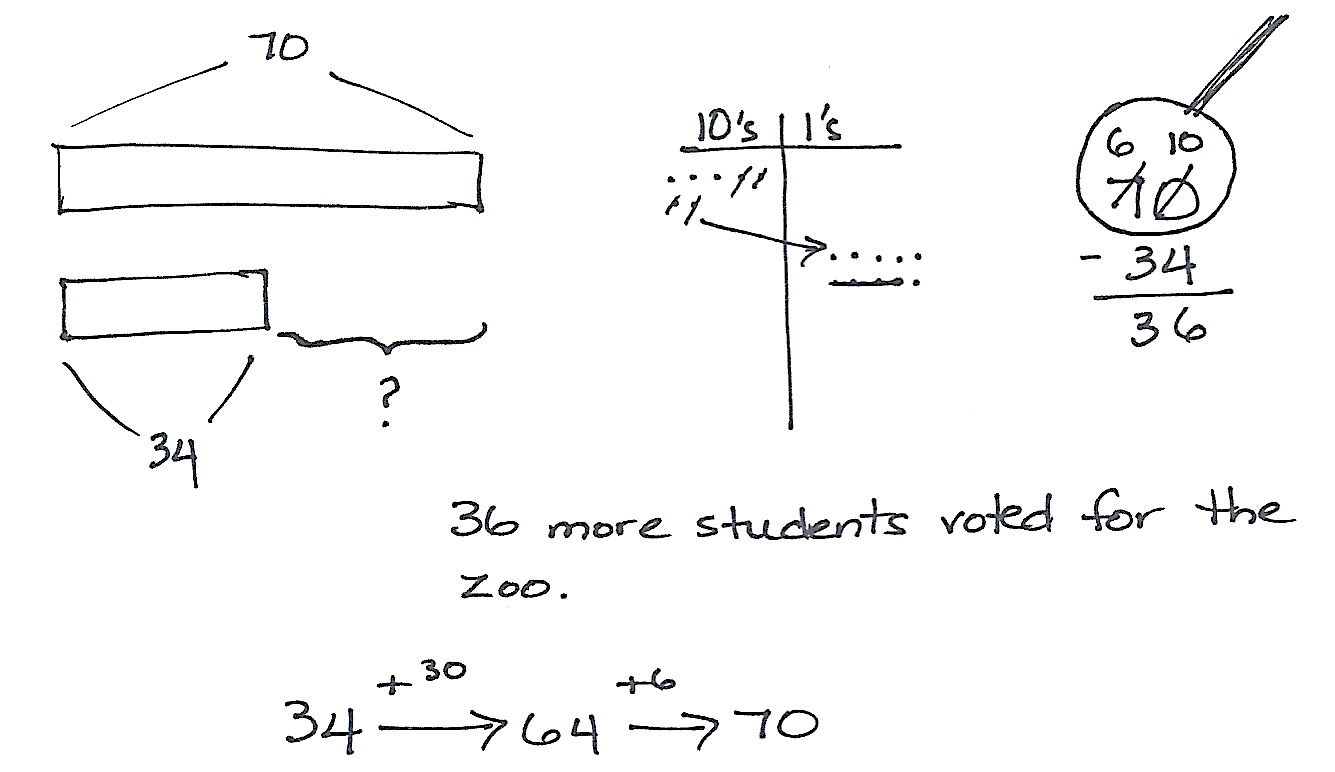 70
10's 1's
6 10
70
- 34
36
?
34
36 more students voted for the
zoo.
+30 +6
34 → 64 → 70